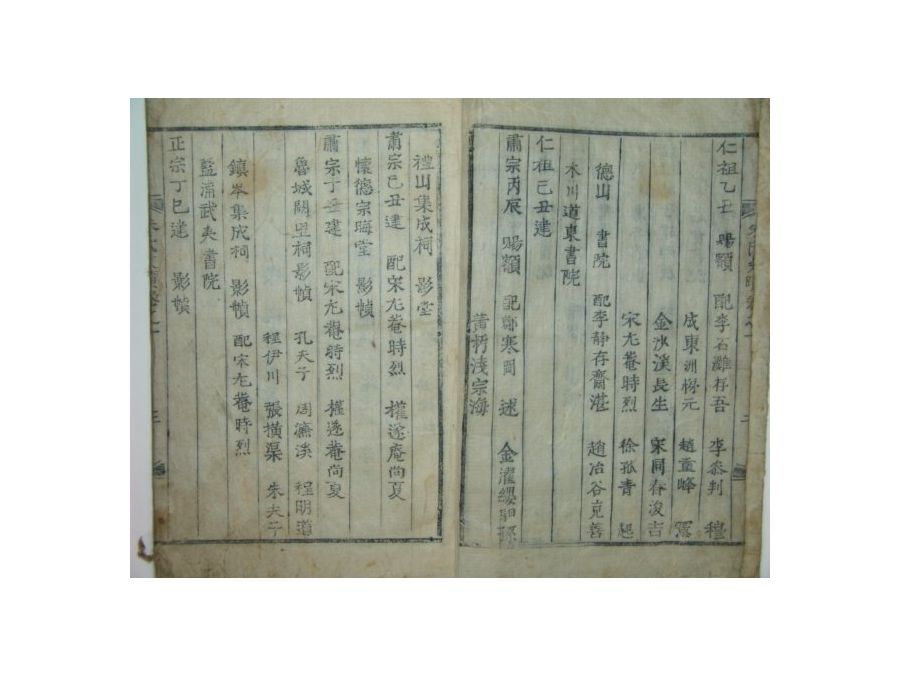 仁祖乙丑 賜額 配李石灘存吾 李叅判 穆
成東洲悌元 趙重峰 憲
金沙溪長生 宋同春浚吉
宋尤菴時烈 徐孤青 起
德山 書院 配李靜存齋湛 趙冶谷克善
木川道東書院
仁祖己丑建
肅宗丙辰 賜額 配鄭寒岡 逑 金濯纓馹孫
黃朽淺宗海
禮山集成祠 影堂
肅宗己丑建 配宋尤菴時烈 權遂庵尚夏
懷德宗晦堂 影幀
肅宗丁丑建 配宋尤菴時烈 權遂菴尚夏
魯城闕里祠影幀 孔夫子 周濂溪 程明道
程伊川 張橫渠 朱夫子
鎮岑集成祠 影幀 配宋尤菴時烈
藍浦武夷書院
正宗丁巳建 影幀